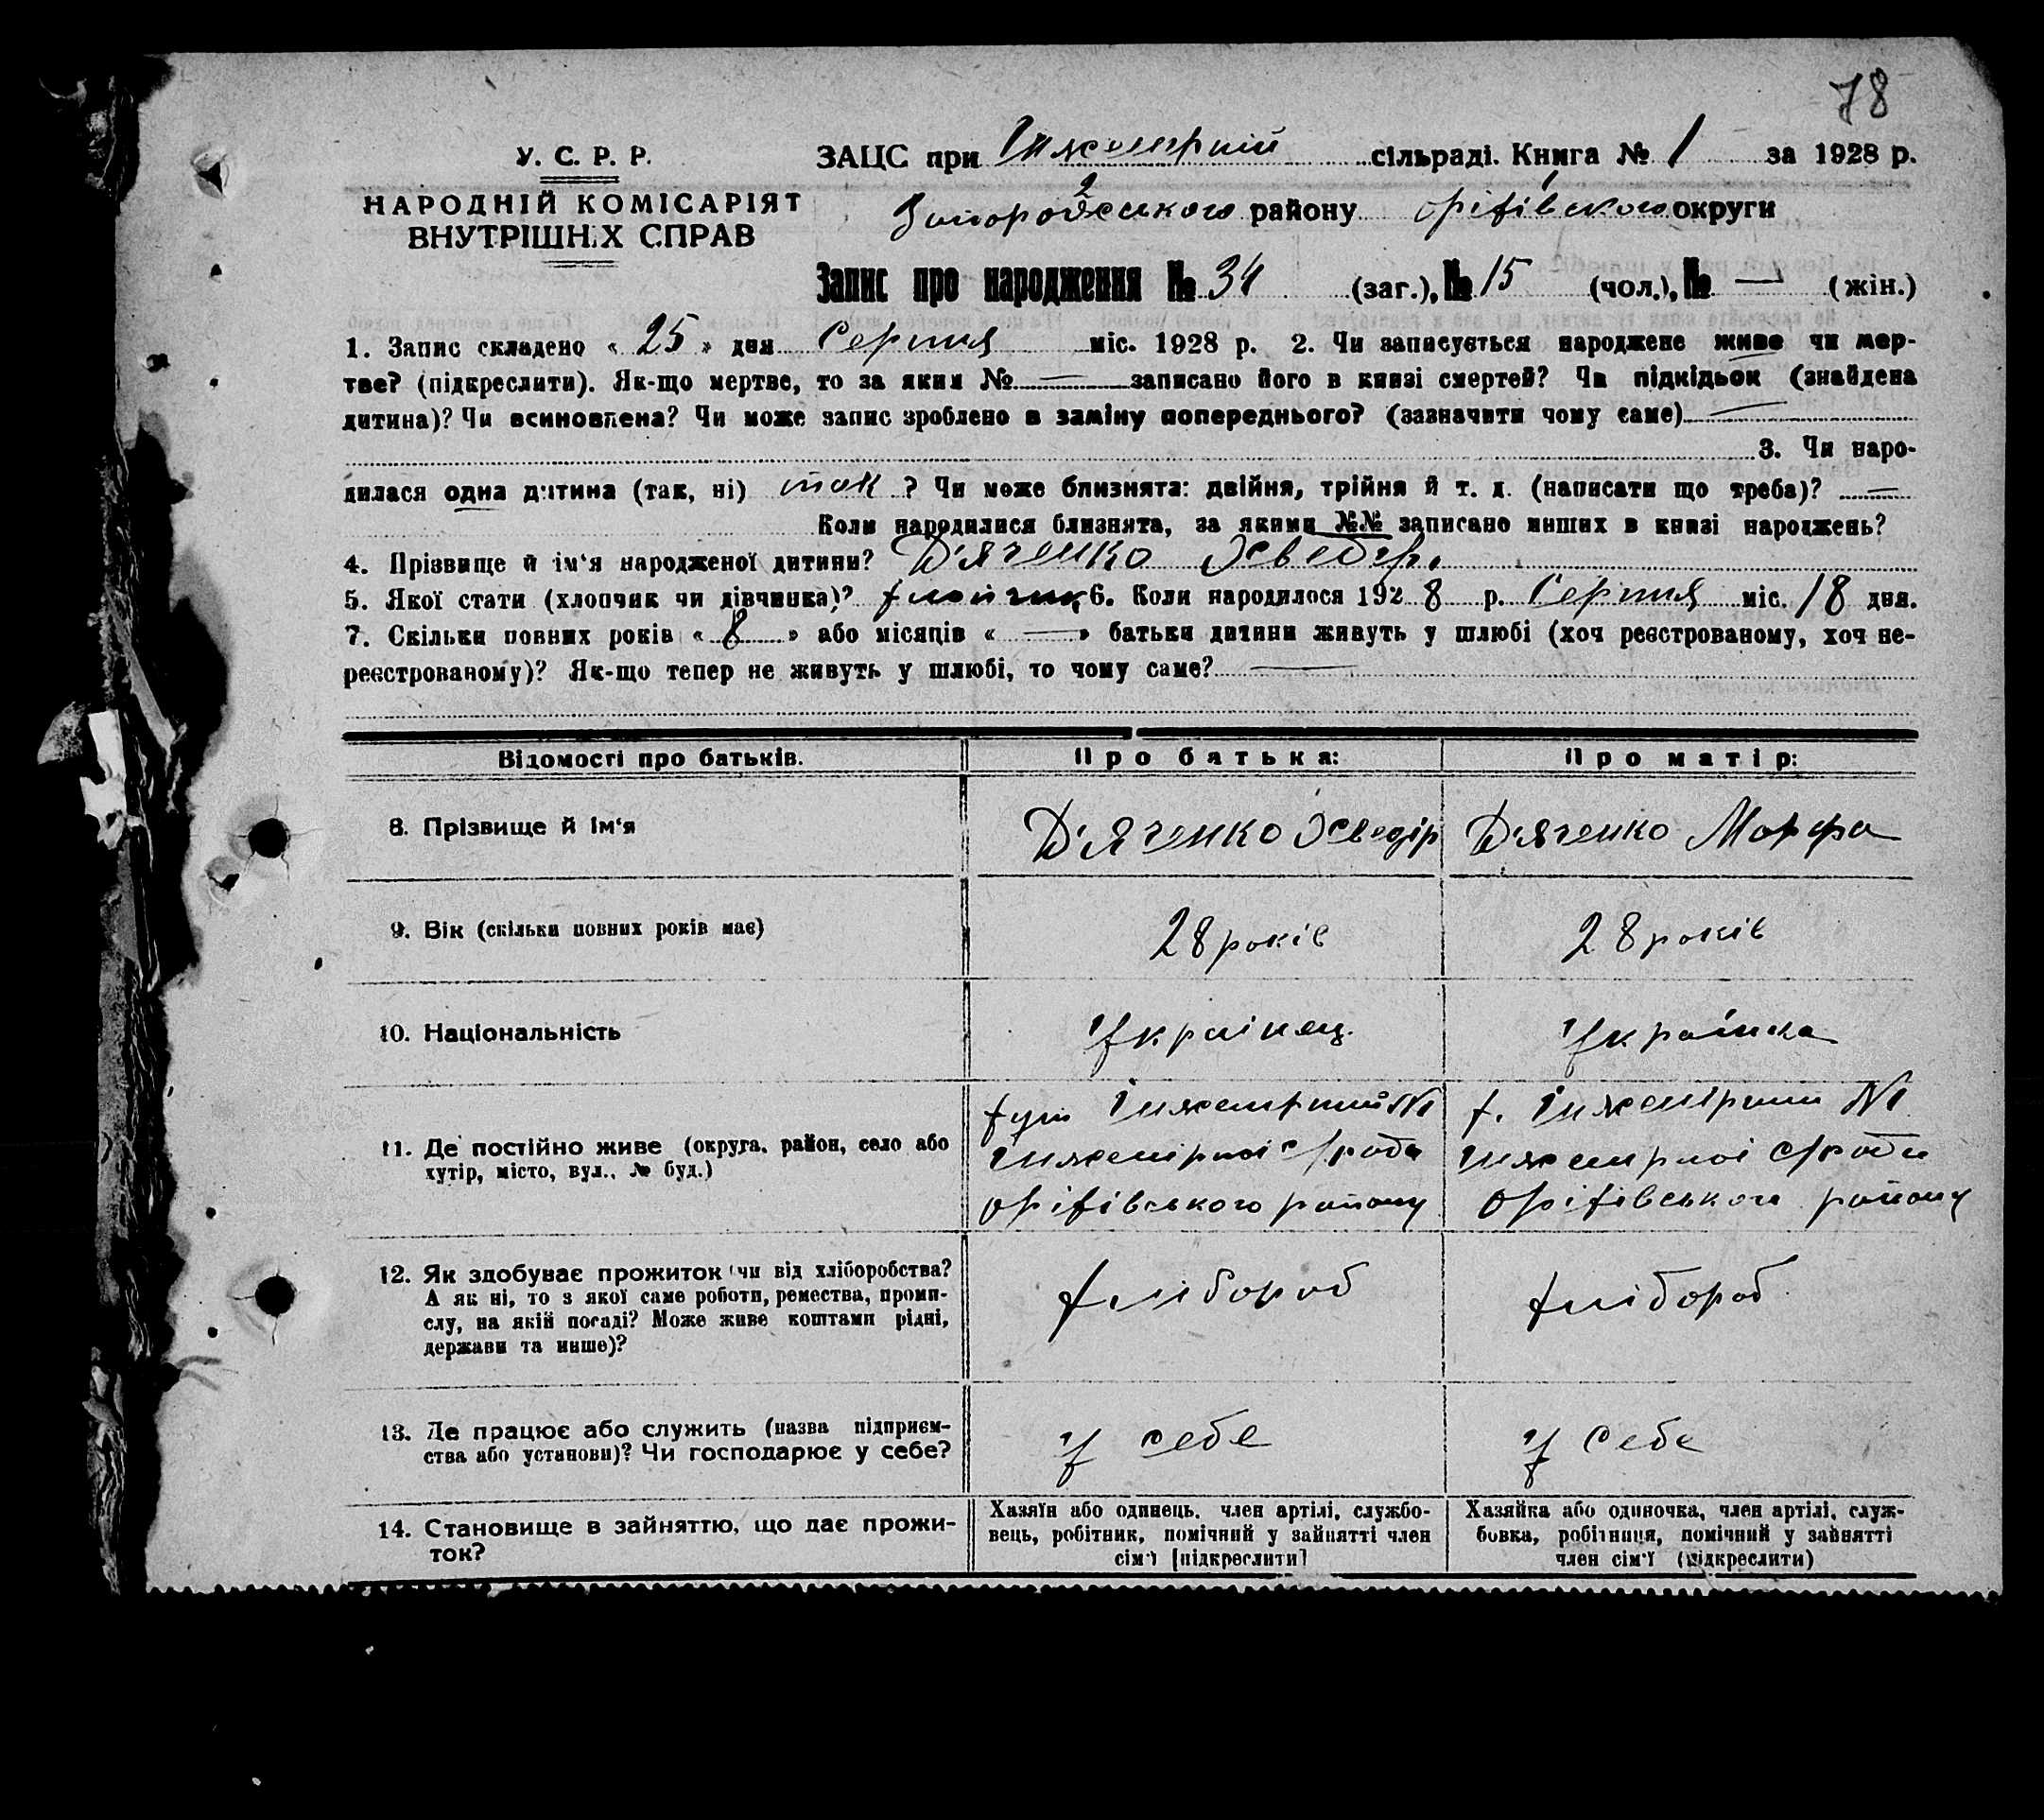 78
У. С. Р. Р. ЗАЦС при Інженерній сільраді. Книга № 1 за 1928 р.
НАРОДНІЙ КОМІСАРІЯТ
ВНУТРІШНІХ СПРАВ
Запорожського району Оріхівського округи
Запис про народження № 34 (заг.), № 15 (чол.), № — (жін.)
1. Запис складено « 25 » дня Серпня міс. 1928 р. 2. Чи записується народжене живе чи мер-
тве? (підкреслити). Як-що мертве, то за яким № — записано його в книзі смертей? Чи підкідьок (знайдена
дитина)? Чи всиновлена? Чи може запис зроблено в заміну попереднього? (зазначити чому саме) —
3. Чи наро-
дилася одна дитина (так, ні) так ? Чи може близнята: двійня, трійня й т. д. (написати що треба)? —
Коли народилися близнята, за якими №№ записано инших в книзі народжень?
4. Прізвище й ім‘я народженої дитини? Д'яченко
5. Якої стати (хлопчик чи дівчинка)? хлопчик 6. Коли народилося 1928 р. Серпня міс. 18 дня.
7. Скільки повних років « 8 » або місяців « — » батьки дитини живуть у шлюбі (хоч реєстрованому, хоч не-
реєстрованому)? Як-що тепер не живуть у шлюбі, то чому саме? —
Відомості про батьків. Про батька: Про матір:
8. Прізвище й ім‘я Д'яченко Д'яченко Марфа
9. Вік (скільки повних років має) 28 років 28 років
10. Національність Українец. Українка
11. Де постійно живе (округа, район, село або
хутір, місто, вул., № буд.)
хут Інженерний №1
Інженірної с/ради
Оріхівського району
х. Інженірний №1
Інженірної с/ради
Оріхівського району
12. Як здобуває прожиток (чи від хліборобства?
А як ні, то з якої саме роботи, ремества, проми-
слу, на якій посаді? Може живе коштами рідні,
держави та инше)?
хлібороб хлібороб
13. Де працює або служить (назва підприєм-
ства або установи)? Чи господарює у себе?
У себе У себе
14. Становище в зайняттю, що дає прожи-
ток?
Хазяїн або одинець, член артілі, службо-
вець, робітник, помічний у зайнятті член
сім'ї [підкреслити]
Хазяйка або одиночка, член артілі, служ-
бовка, робітниця, помічний у зайнятті
член сім'ї (підкреслити)